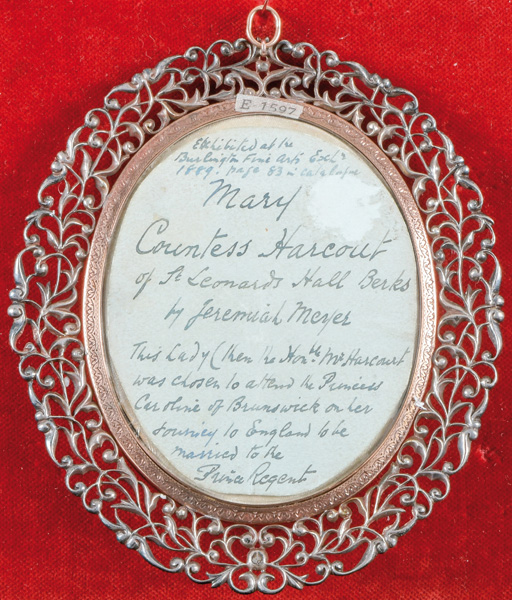 E-1597
Exhibited at the
Burlington Fine Arts Exbn
1889. page 83 in catalogue
Mary
Countess Harcourt
of St Leonards Hall Berks
by Jeremiah Meyer
This Lady (then the Honble Mrs Harcourt
was chosen to attend the Princess
Caroline of Brunswick on her
journey to England to be
married to the
Prince Regent